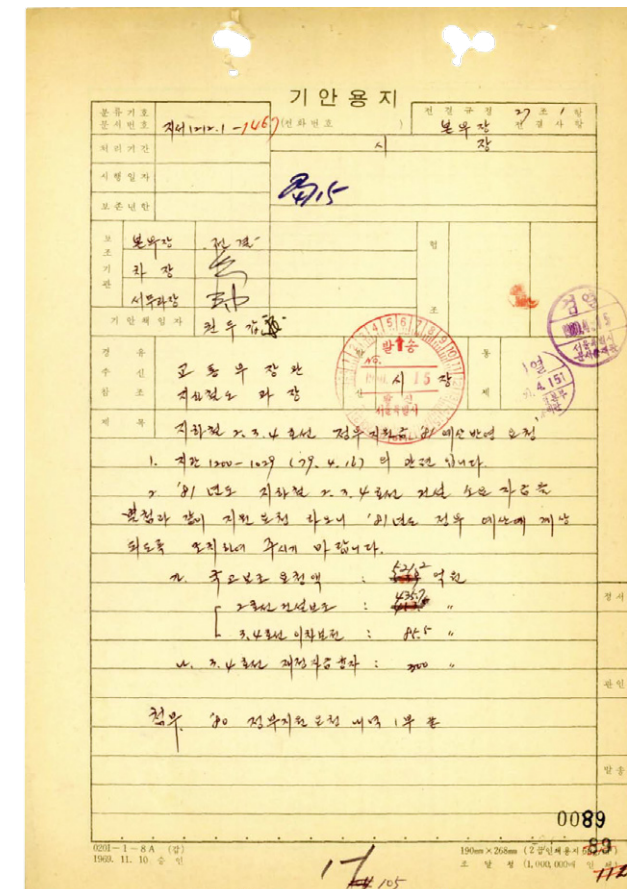 기안용지
분류기호
문서번호 지서1212.1-1467 (전화번호 )
전결규정 27조 1항
본부장 전결사항
처리기간
시 장
시행일자
4/15
보존년한
보조기관
본부장 전결
차장
서무과장
협조
기안책임자
경유
수신 교통부장관
참조 지하철도과장
발송
NO.
시 15 장
발신
서울특별시
통제
검열
서울특별시
제목 지하철 2.3.4호선 정부지원금 '81 예산반영 요청
1. 지관 1200-1029 (79.4.16) 의 관련 입니다.
2. '81년도 지하철 2.3.4호선 건설 소요 자금을
별첨과 같이 지원 요청 하오니 '81년도 정부 예산에 계상
되도록 조치하여 주시기 바랍니다.
가. 국고보조 요청액 : 521.2 억원
2호선 건설보조 : 435.7 〃
3.4호선 이차보전 : 85.5 〃
나. 3.4호선 재정자금융자 : 300 〃
첨부. '80 정부지원요청 내역 1부 끝
정서
관인
발송
0089
0201-1-8A (갑)
1969. 11. 10 승인
190mm×268mm (2급인쇄용지
조달청 (1,000,000매 인쇄)
89
17
105
112